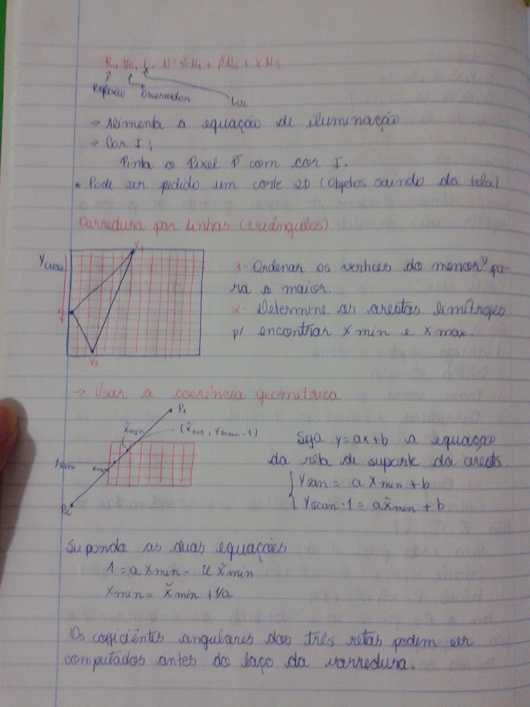 R, Vo, L, N = αN1 + βN2 + γN3
Reflexão Observador Luz
→ Alimenta a equação de iluminação
→ Cor I;
Pinta o Pixel P com cor I.
* Pode ser pedido um corte 2D (Objetos saindo da tela)
Varredura por linhas (triângulos)
V1
Yscan
V3
1- Ordenar os vértices do menor Y pa
ra o maior.
2- Determine as arestas limítrofes
p/ encontrar X min e X max.
→ Usar a coerência geométrica
P1
x̃min
(x̃min, Yscan-1)
Yscan
xmin
P2
Seja y=ax+b a equação
da reta de suporte da aresta.
Yscan = a Xmin + b
Yscan-1 = a x̃min + b
as duas equações
1 = a xmin - a x̃min
xmin = x̃min + 1/a
Os coeficientes angulares das três retas podem ser
computados antes do laço da varredura.